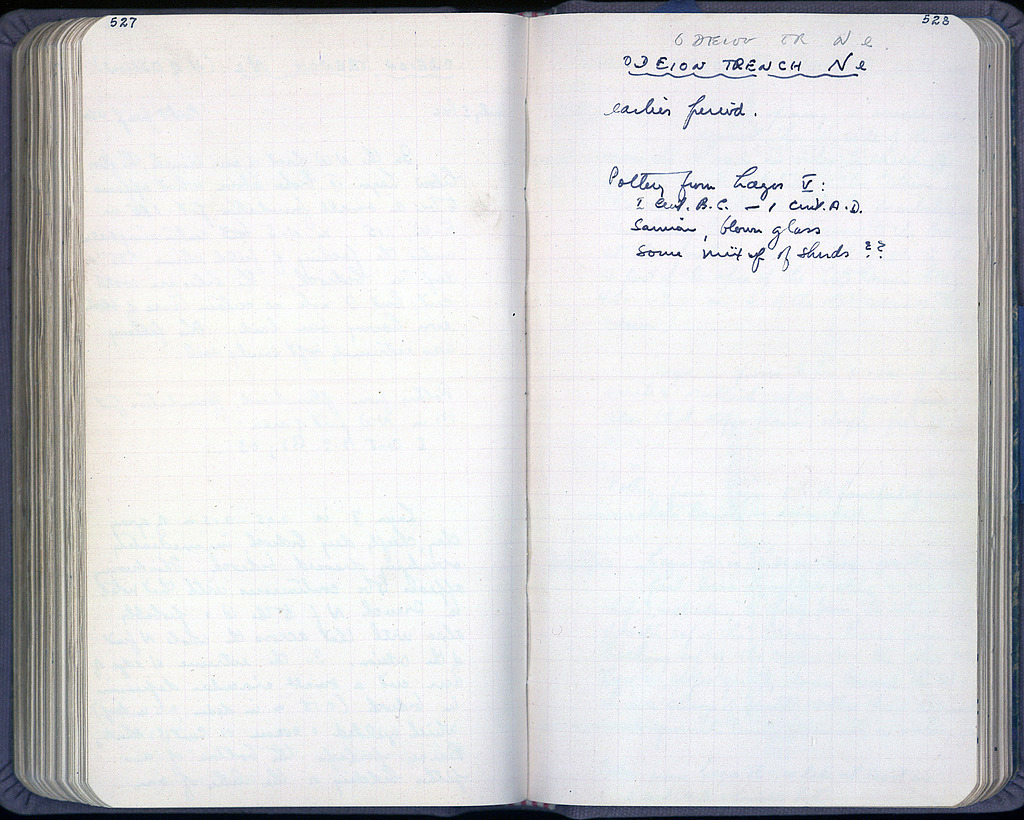 527
528
ODEION TR Ne.
ODEION TRENCH Ne
earlier period.
Pottery from Layer V:
I Cent. B.C. — 1 Cent. A.D.
Samian, blown glass
some mix up of sherds ??